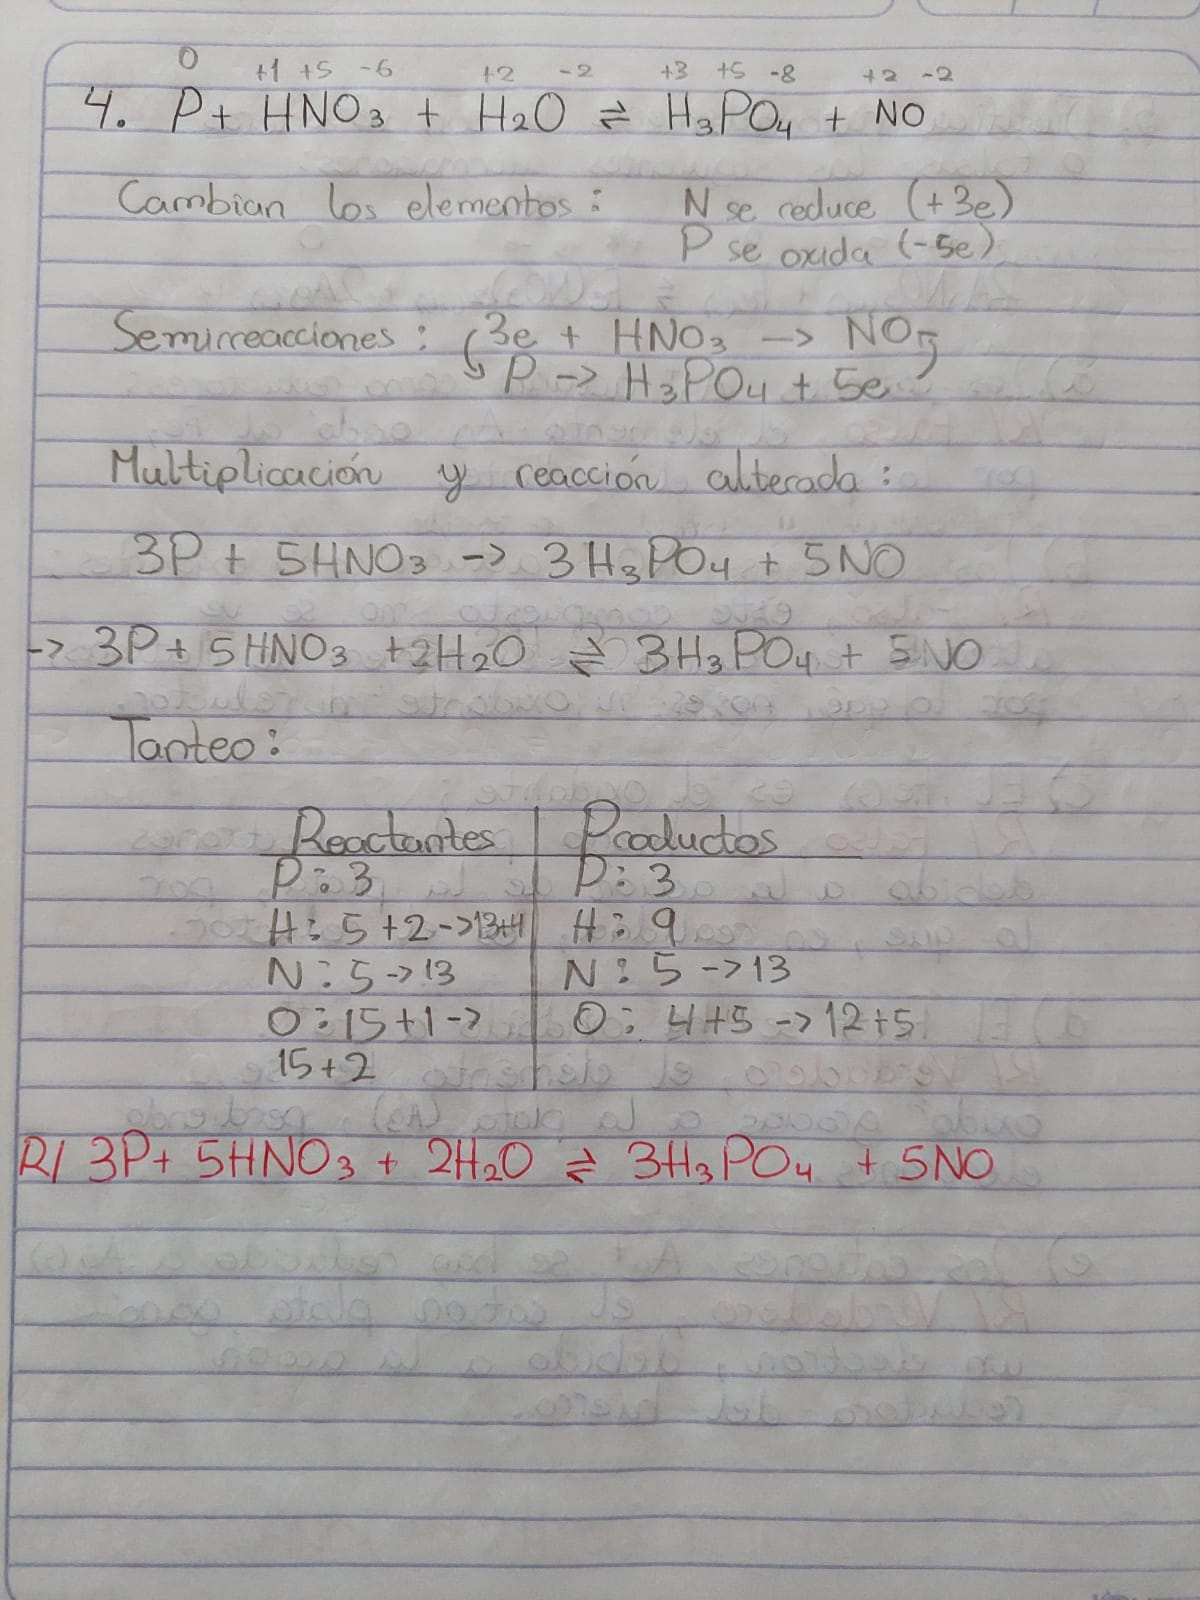 0 +1 +5 -6 +2 -2 +3 +5 -8 +2 -2
4. P + HNO₃ + H₂O ⇌ H₃PO₄ + NO
Cambian los elementos: N se reduce (+3e)
P se oxida (-5e)
Semirreacciones: 3e + HNO₃ -> NO
P -> H₃PO₄ + 5e
Multiplicación y reacción alterada:
3P + 5HNO₃ -> 3H₃PO₄ + 5NO
-> 3P + 5HNO₃ +2H₂O ⇌ 3H₃PO₄ + 5NO
Tanteo:
Reactantes | Productos
P: 3 P: 3
H: 5+2->13+4 H: 9
N: 5->13 N: 5->13
O: 15+1-> O: 4+5->12+5
15+2
R/ 3P+ 5HNO₃ + 2H₂O ⇌ 3H₃PO₄ + 5NO